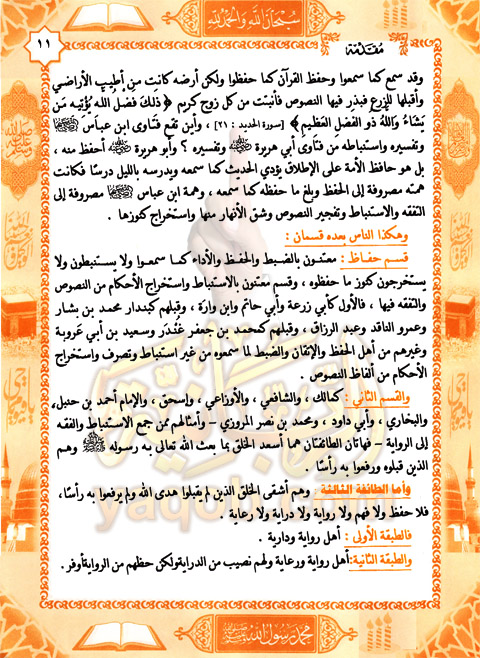 سبحان الله والحمد لله
مقدمة
١١
وقد سمع كما سمعوا وحفظ القرآن كما حفظوا ولكن أرضه كانت من أطيب الأراضي
وأقبلها للزرع فبذر فيها النصوص فأنبتت من كل زوج كريم ﴿ ذلك فضل الله يؤتيه من
يشاء والله ذو الفضل العظيم ﴾ [ سورة الحديد : ٢١ ] ، وأين تقع فتاوى ابن عباس
وتفسيره واستنباطه من فتاوى أبي هريرة وتفسيره ؟ وأبو هريرة أحفظ منه ،
بل هو حافظ الأمة على الإطلاق يؤدي الحديث كما سمعه ويدرسه بالليل درسًا فكانت
همته مصروفة إلى الحفظ وبلغ ما حفظه كما سمعه ، وهمة ابن عباس مصروفة إلى
التفقه والاستنباط وتفجير النصوص وشق الأنهار منها واستخراج كنوزها .
وهكذا الناس بعده قسمان :
قسم حفاظ : معتنون بالضبط والحفظ والأداء كما سمعوا ولا يستنبطون ولا
يستخرجون كنوز ما حفظوه ، وقسم معتنون بالاستنباط واستخراج الأحكام من النصوص
والتفقه فيها ، فالأول كأبي زرعة وأبي حاتم وابن وارة ، وقبلهم كبندار محمد بن بشار
وعمرو الناقد وعبد الرزاق ، وقبلهم كمحمد بن جعفر غندر وسعيد بن أبي عروبة
وغيرهم من أهل الحفظ والإتقان والضبط لما سمعوه من غير استنباط وتصرف واستخراج
الأحكام من ألفاظ النصوص .
والقسم الثاني : كمالك ، والشافعي ، والأوزاعي ، وإسحق ، والإمام أحمد بن حنبل
والبخاري ، وأبي داود ، ومحمد بن نصر المروزي - وأمثالهم ممن جمع الاستنباط والفقه
إلى الرواية - فهاتان الطائفتان هما أسعد الخلق بما بعث الله تعالى به رسوله ﷺ وهم
الذين قبلوه ورفعوا به رأسًا .
وأما الطائفة الثالثة وهم أشقى الخلق الذين لم يقبلوا هدى الله ولم يرفعوا به رأسًا،
فلا حفظ ولا فهم ولا رواية ولا دراية ولا رعاية .
فالطبقة الأولى : أهل رواية ودارية .
والطبقة الثانية:أهل رواية ورعاية ولهم نصيب من الدرايةولكن حظهم من الروايةأوفر .
محمد رسول الله